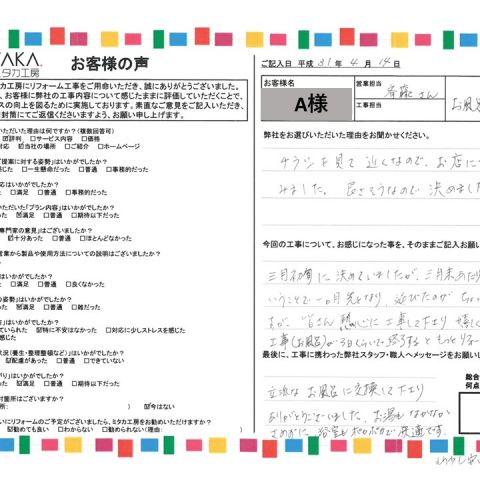 TAKA.
ミタカ工房
お客様の声
カ工房にリフォーム工事をご用命いただき、誠にありがとうございました。
、お客様に弊社の工事内容について感じたままに評価していただくことで、
スの向上を図るために実施しております。率直なご意見をご記入いただき、
封筒にてご返信くださいますよう、お願い申し上げます。
いただいた理由は何ですか?(複数回答可)
☑評判 □サービス内容 □価格
対応 ☑当社の場所 □ご紹介 □ホームページ
「提案に対する姿勢」はいかがでしたか?
□一生懸命だった □普通 □事務的だった
応はいかがでしたか?
□満足 □普通 □事務的だった
いただいた「プラン内容」はいかがでしたか?
った ☑満足 □普通 □期待以下だった
専門家の意見」はございましたか?
☑十分あった □普通 □ほとんどなかった
営業から製品や使用方法についての説明はございましたか?
はいかがでしたか?
□満足 □普通 □良くなかった
の姿勢」はいかがでしたか?
□普通 □雑だった
」はいかがでしたか?
ていられた ☑特に不安はなかった □対応に少しストレスを感じた
状況(養生・整理整頓など)」はいかがでしたか?
☑配慮があった □普通 □できていない
がり」はいかがでしたか?
った ☑満足 □普通 □期待以下だった
討箇所はございますか?
所: ) ☑今はない
いにリフォームのご予定がございましたら、ミタカ工房をお勧めいただけますか?
☑勧めても良い □わからない □勧められない(理由: )
ご記入日 平成 31 年 4 月 14 日
お客様名
A様
営業担当
斉藤さん
工事担当
お風呂
弊社をお選びいただいた理由をお聞かせください。
チラシを見て近くなので、お店に
みました。良さそうなので決めまし
今回の工事について、お感じになった事を、そのままご記入お願い
三月初旬に決めていましたが、三月末あたり
いうことで一ヶ月先となり、延びたのがちょっ
すが、皆さん熱心に工事して下さり嬉し
最後に、工事に携わった弊社スタッフ・職人へメッセージをお願いし
立派なお風呂に交換して下さり
ありがとうございました。お湯もなかなか
さめずに、浴室もポカポカで快適です。
総合
何点